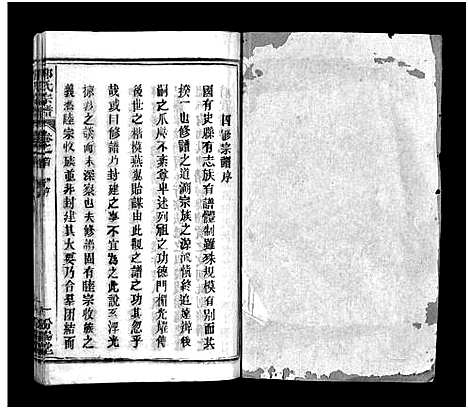 四修宗譜序
國有史縣有志族有譜體制雖殊規模有別而其
揆一也修譜之道溯宗族之源流愼終追遠辨後
嗣之爪瓞不紊尊卑述列祖之功德門楣光耀傳
後世之楷模燕翼貽謀由此觀之譜之功其忽乎
哉或曰修譜乃封建之事不宜為之此說乃浮光
掠影之談而未深察也夫修譜固有睦宗收族之
義為睦宗收族並非封建其大要乃合羣團結而
氏宗譜
卷之首
序
汾陽堂